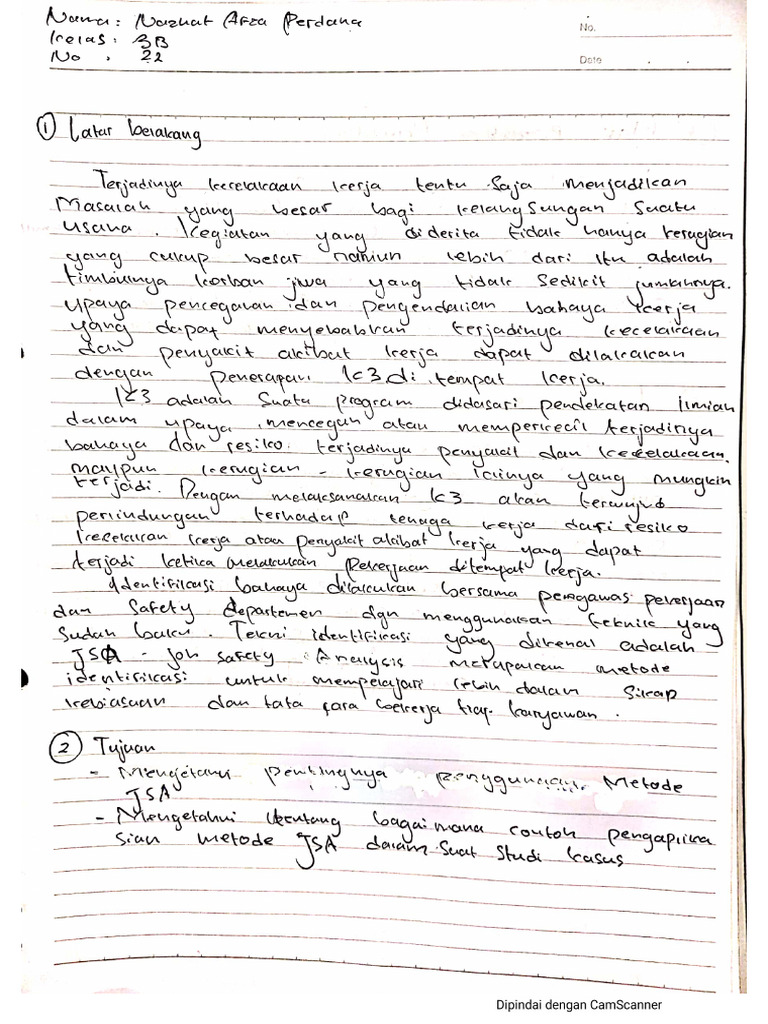 Nama : Nazhat Arza Perdana
Kelas : 3B
No . 22
No.
Date
1 Latar belakang
Terjadinya kecelakaan kerja tentu saja menjadikan
Masalah yang besar bagi kelangsungan suatu
usaha. Kegiatan yang diderita tidak hanya kerugian
yang cukup besar namun lebih dari itu adalah
timbulnya korban jiwa yang tidak sedikit jumlahnya.
upaya pencegahan dan pengendalian bahaya kerja
yang dapat menyebabkan terjadinya kecelakaan
dan penyakit akibat kerja dapat dilakukan
dengan penerapan k3 di tempat kerja.
K3 adalah suatu program didasari pendekatan ilmiah
dalam upaya mencegah atau memperkecil terjadinya
bahaya dan resiko terjadinya penyakit dan kecelakaan,
maupun kerugian - kerugian lainya yang mungkin
terjadi. Dengan melaksanakan k3 akan terwujud
perlindungan terhadap tenaga kerja dari resiko
kecelakan kerja atau penyakit akibat kerja yang dapat
terjadi ketika melakukan pekerjaan ditempat kerja.
Identifikasi bahaya dilakukan bersama pengawas pekerjaan
dan Safety departemen dgn menggunakan teknik yang
sudah baku. Tekni identifikasi yang dikenal adalah
JSA - Job safety Analysis merupakan metode
identifikasi untuk mempelajari lebih dalam sikap
kebiasaan dan tata cara bekerja tiap karyawan.
2 Tujuan
- Mengetahui pentingnya penggunaan Metode
JSA
- Mengetahui tentang bagaimana contoh pengaplika
sian metode JSA dalam suat studi kasus
Dipindai dengan CamScanner